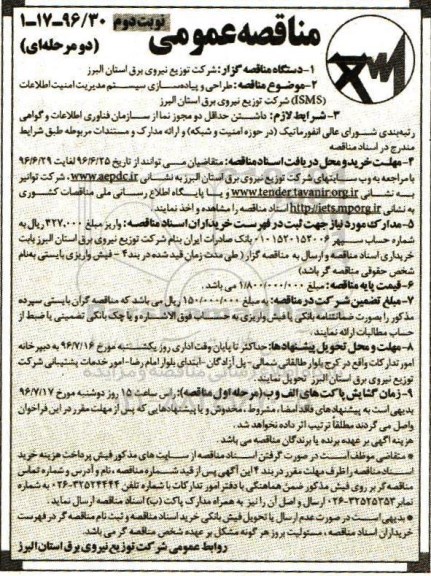 مناقصه عمومی
نوبت دوم
۱-۱۷-۹۶/۳۰
(دو مرحله‌ای)
۱-دستگاه مناقصه گزار: شرکت توزیع نیروی برق استان البرز
۲-موضوع مناقصه: طراحی و پیاده‌سازی سیستم مدیریت امنیت اطلاعات
(ISMS) شرکت توزیع نیروی برق استان البرز
۳- شرایط لازم: داشتن حداقل دو مجوز نما از سازمان فناوری اطلاعات و گواهی
رتبه‌بندی شورای عالی انفورماتیک (در حوزه امنیت و شبکه) و ارائه مدارک و مستندات مربوطه طبق شرایط
مندرج در اسناد مناقصه
۴- مهلت خرید و محل دریافت اسناد مناقصه: متقاضیان می توانند از تاریخ ۹۶/۶/۲۵ لغایت ۹۶/۶/۲۹
با مراجعه به وب سایتهای شرکت توزیع نیروی برق استان البرز به نشانی www.aepdc.ir، شرکت توانیر
به نشانی www.tender.tavanir.org.ir و یا پایگاه اطلاع رسانی ملی مناقصات کشوری
به نشانی http://iets.mporg.ir اسناد مناقصه را مشاهده و اخذ نمایند.
۵- مدارک مورد نیاز جهت ثبت در فهرست خریداران اسناد مناقصه: واریز مبلغ ۳۲۷.۰۰۰ ریال به
شماره حساب سپهر ۰۱۰۱۵۲۰۱۵۳۰۰۶ بانک صادرات ایران بنام شرکت توزیع نیروی برق استان البرز بابت
خریداری اسناد مناقصه و ارسال به مناقصه گزار (طی مدت زمان قید شده در بند ۴ - فیش واریزی بایستی به‌نام
شخص حقوقی مناقصه گر باشد)
۶- قیمت پایه مناقصه: مبلغ ۱/۸۰۰/۰۰۰/۰۰۰ می باشد
۷- مبلغ تضمین شرکت در مناقصه: به مبلغ ۱۵۰/۰۰۰/۰۰۰ ریال می باشد که مناقصه گران بایستی سپرده
مذکور را بصورت ضمانتنامه بانکی یا فیش واریزی به حساب فوق الاشاره و یا چک بانکی تضمینی یا ضبط از
حساب مطالبات ارائه نمایند.
۸- مهلت و محل تحویل پیشنهادها: حداکثر تا پایان وقت اداری روز یکشنبه مورخ ۹۶/۷/۱۶ به دبیرخانه
امور تدارکات واقع در کرج بلوار طالقانی شمالی - پل آزادگان - ابتدای بلوار امام رضا - امور خدمات پشتیبانی شرکت
توزیع نیروی برق استان البرز تحویل نمایند.
۹- زمان گشایش پاکت های الف و ب (مرحله اول مناقصه): راس ساعت ۱۵ روز دوشنبه مورخ ۹۶/۷/۱۷
بدیهی است به پیشنهادهای فاقد امضا، مشروط، مخدوش و یا پیشنهادهایی که پس از مهلت مقرر در این فراخوان
واصل می گردند مطلقاً ترتیب اثر داده نخواهد شد.
هزینه آگهی بر عهده برنده یا برندگان مناقصه می باشد.
* متقاضی موظف است در صورت گرفتن اسناد مناقصه از سایت های مذکور فیش پرداخت هزینه خرید
اسناد مناقصه را ظرف مهلت مقرر در بند ۴ این آگهی پس از قید شماره مناقصه، نام و آدرس و شماره تماس
مناقصه گر بر روی فیش مذکور ضمن هماهنگی با دفتر امور تدارکات با شماره تلفن ۳۲۵۲۴۴۴۴-۰۲۶ به شماره
نمابر ۳۲۵۲۵۳۵۳-۰۲۶ ارسال و اصل آن را نیز به همراه مدارک پاکت (ب) اسناد مناقصه ارسال نماید.
* بدیهی است در صورت عدم ارسال یا تحویل فیش بانکی خرید اسناد مناقصه و ثبت نام مناقصه گر در فهرست
خریداران اسناد مناقصه، مسئولیت بروز هر گونه مشکل بر عهده شخص مناقصه گر می باشد.
روابط عمومی شرکت توزیع نیروی برق استان البرز